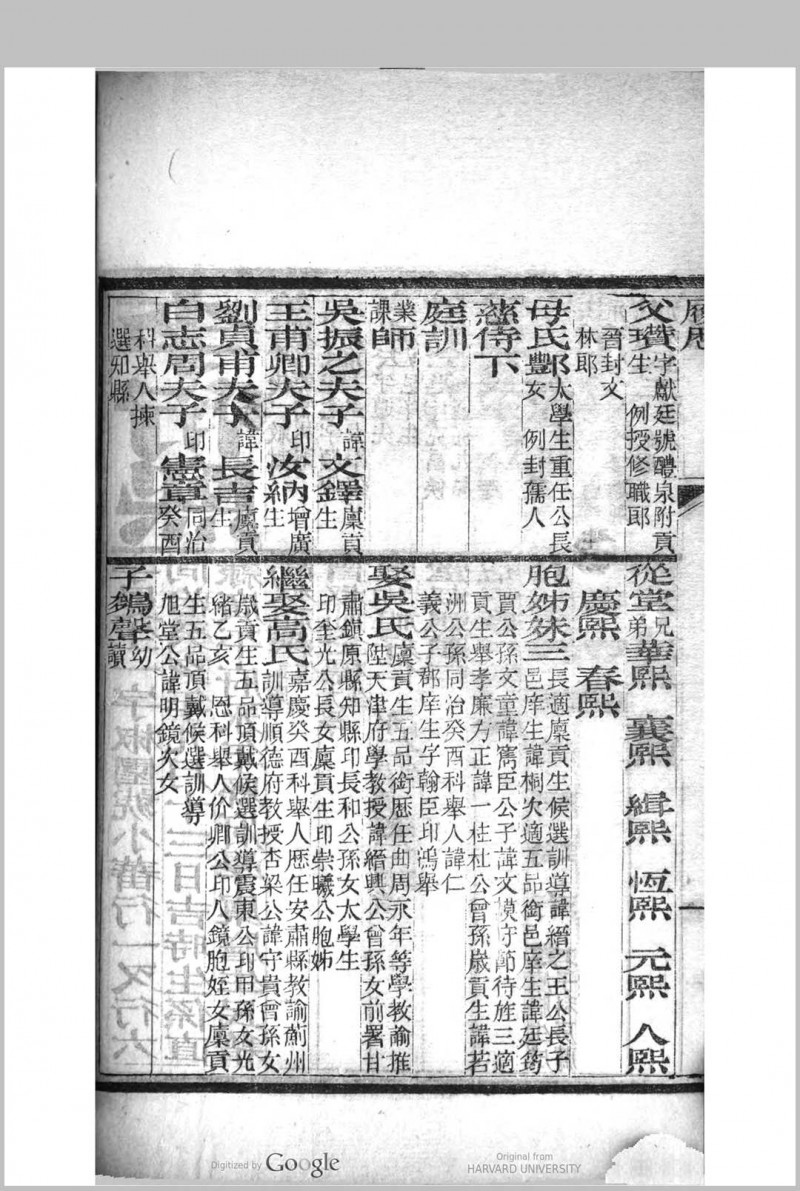 履歷
父瓚字獻廷號醴泉附貢
生 例授修職郎
晉封文
林郎
母氏鄧太學生重任公長
豐女 例封孺人
慈侍下
庭訓
業
課師
吳振之夫子諱文鐸廩貢
生
王甫卿夫子印汝納增廣
生
劉貢甫夫子諱長吉廩貢
生
白志周夫子印憲章同治
癸酉
科舉人揀
選知縣
從堂兄
弟華熙 襄熙 緝熙 恆熙 元熙 人熙
慶熙 春熙
胞姊妹三長適廩貢生候選訓導諱縉之王公長子
邑庠生諱桐次適五品銜邑庠生諱廷筠
賈公孫文童諱嶲臣公子諱文謨守節待旌三適
貢生舉孝廉方正諱一桂杜公曾孫歲貢生諱若
洲公孫同治癸酉科舉人諱仁
義公子郡庠生字翰臣印鴻舉
娶吳氏廩貢生五品銜歷任曲周永年等學教諭推
陞天津府學教授諱縉興公曾孫女前署甘
肅鎮原縣知縣印長和公孫女太學生
印奎光公長女廩貢生印崇曦公胞姊
繼娶高氏嘉慶癸酉科舉人歷任安肅縣教諭薊州
訓導順德府教授杏梁公諱守貴曾孫女
歲貢生五品頂戴候選訓導震東公印甲孫女光
緒乙亥 恩科舉人价卿公印八鏡胞姪女廩貢
生五品頂戴候選訓導
旭堂公諱明鏡次女
子鶴聲幼
讀
Digitized by Google
Original from
HARVARD UNIVERSITY